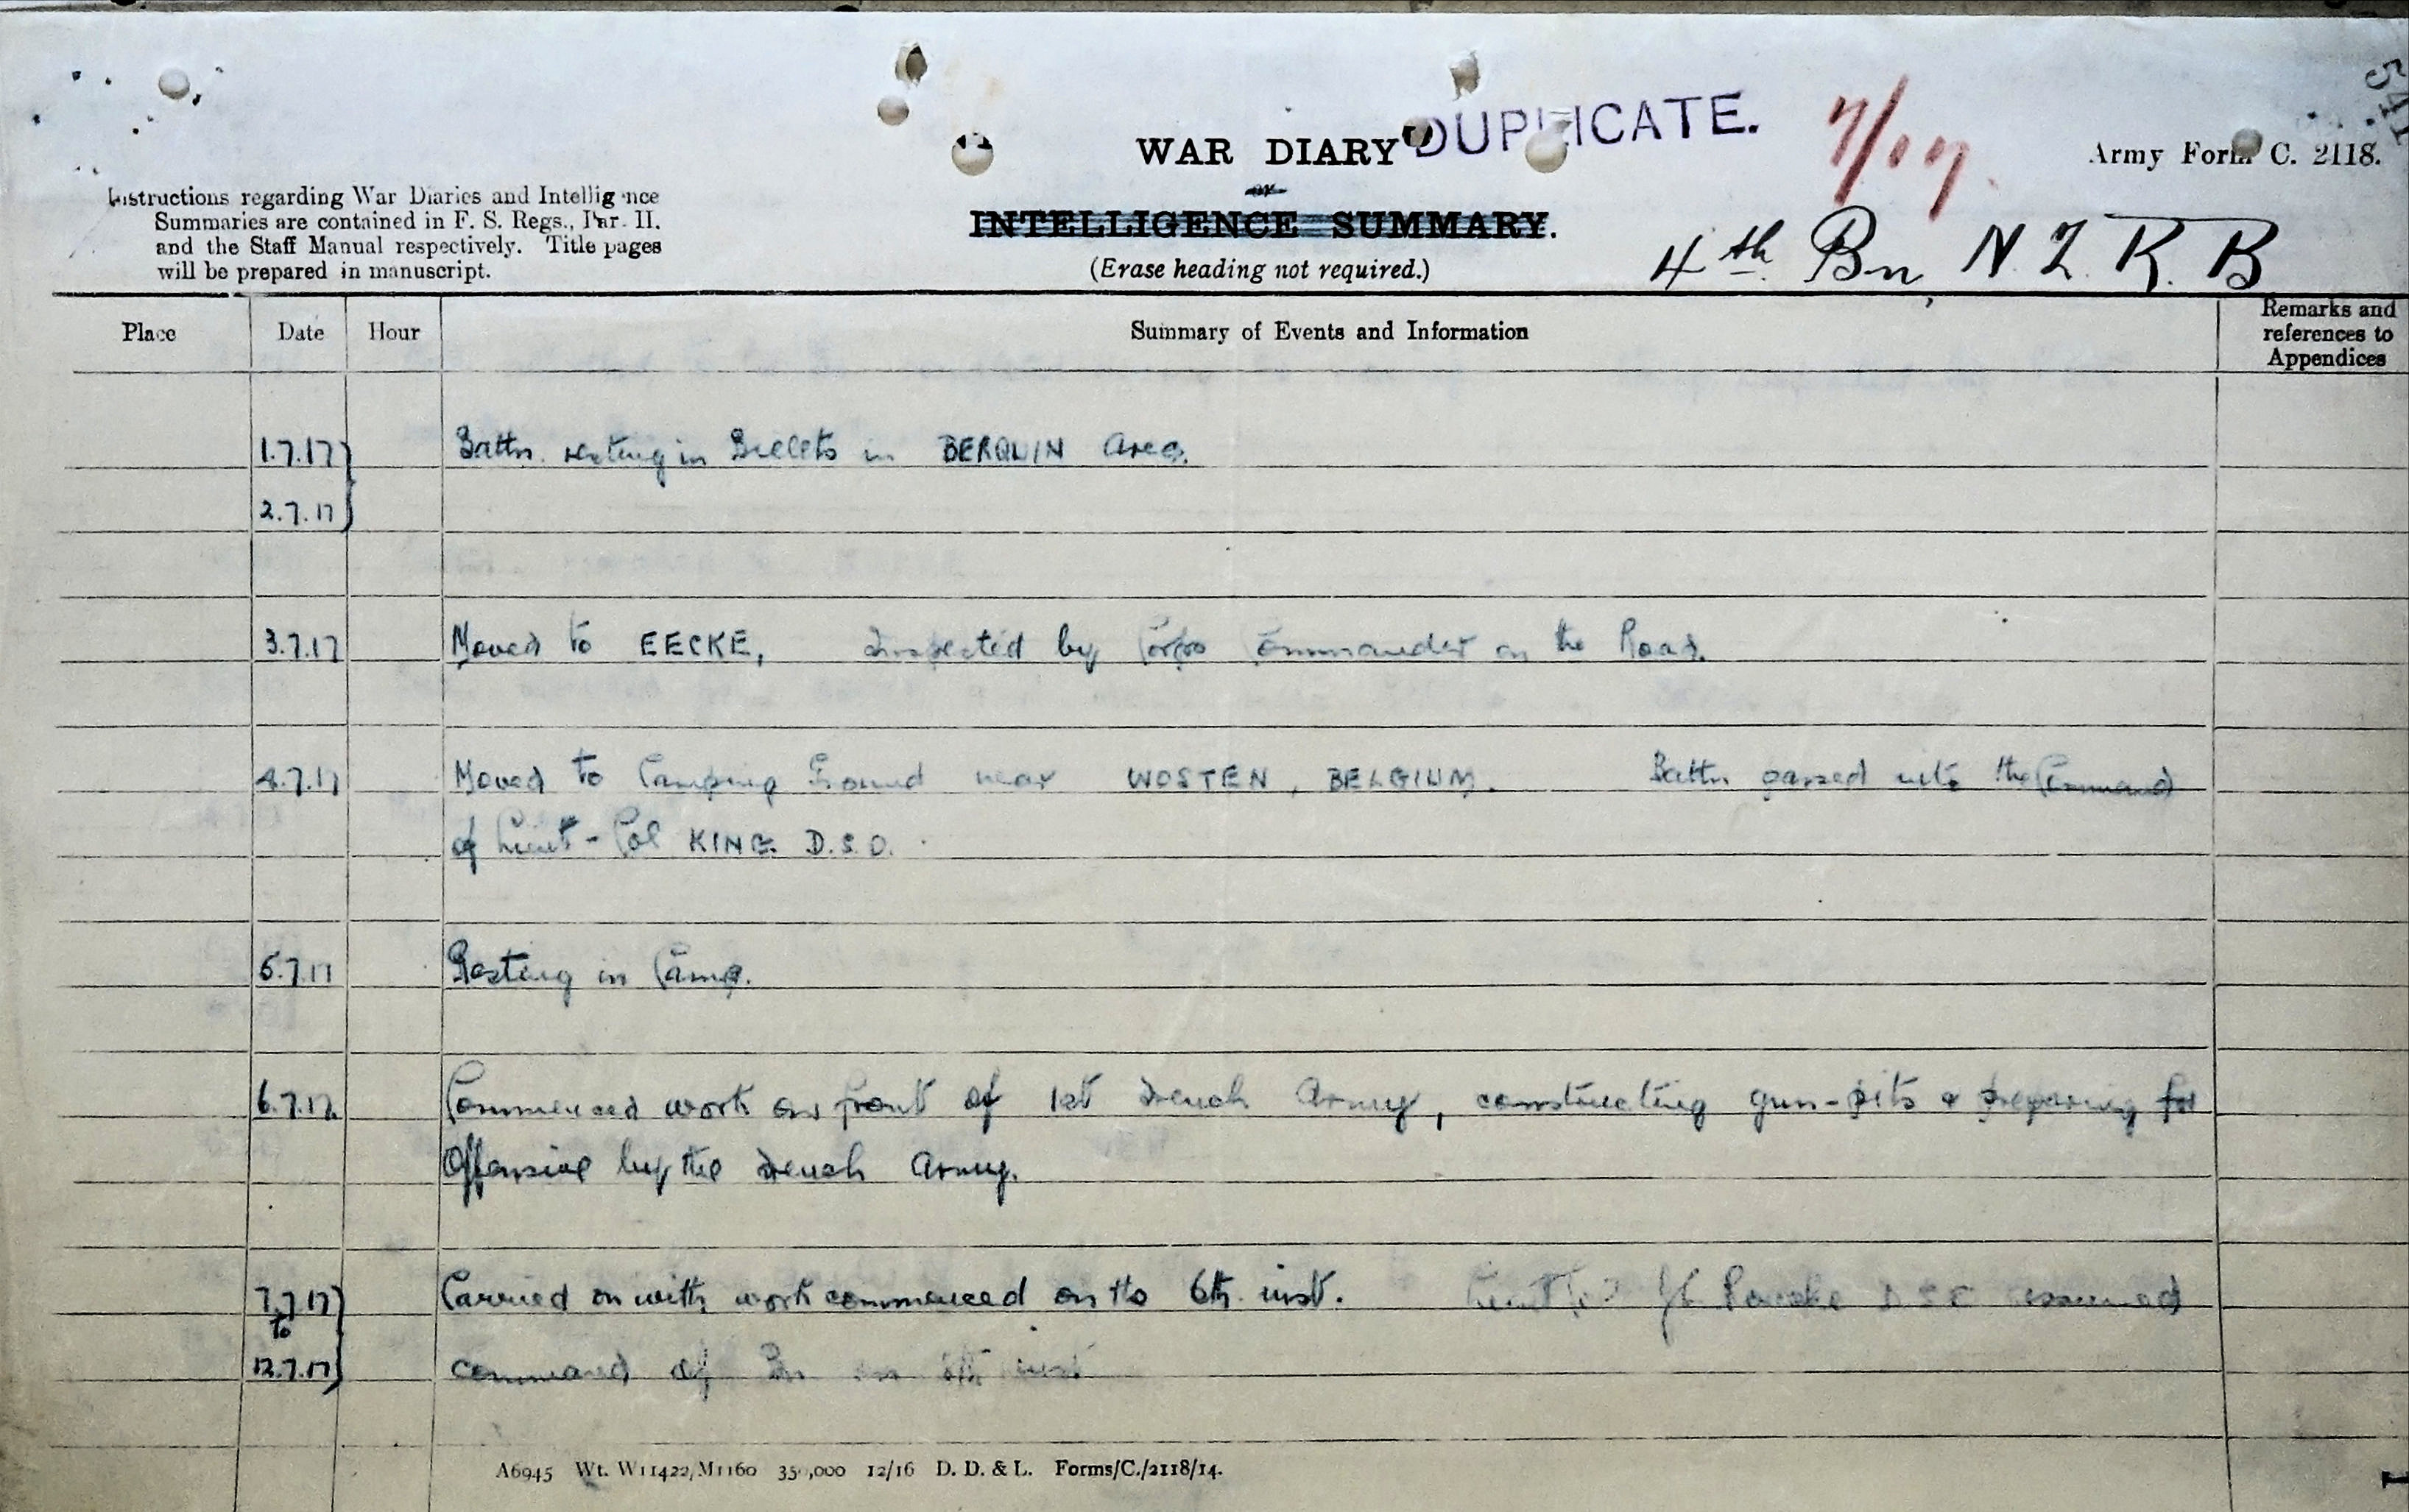 DUPLICATE.
7/17
541
WAR DIARY
Army Form C. 2118.
or
Instructions regarding War Diaries and Intelligence
Summaries are contained in F. S. Regs., Par. II.
and the Staff Manual respectively. Title pages
will be prepared in manuscript.
INTELLIGENCE SUMMARY.
(Erase heading not required.)
4th Bn, N Z R. B
Place Date Hour Summary of Events and Information Remarks and
references to
Appendices
1.7.17 Battn. resting in Billets in BERQUIN Area.
2.7.17
3.7.17 Moved to EECKE, Inspected by Corps Commander on the Road.
4.7.17 Moved to Camping Ground near WOSTEN, BELGIUM. Battn passed into the Command
of Lieut-Col KING. D.S.O.
5.7.17 Resting in Camp.
6.7.17 Commenced work on front of 1st French Army, constructing gun-pits & preparing for
Offensive by the French Army.
7.7.17 Carried on with work commenced on the 6th inst. D S O assumed
to
12.7.17 command of Bn on inst
A6945 Wt. W11422/M1160 350,000 12/16 D. D. & L. Forms/C./2118/14.